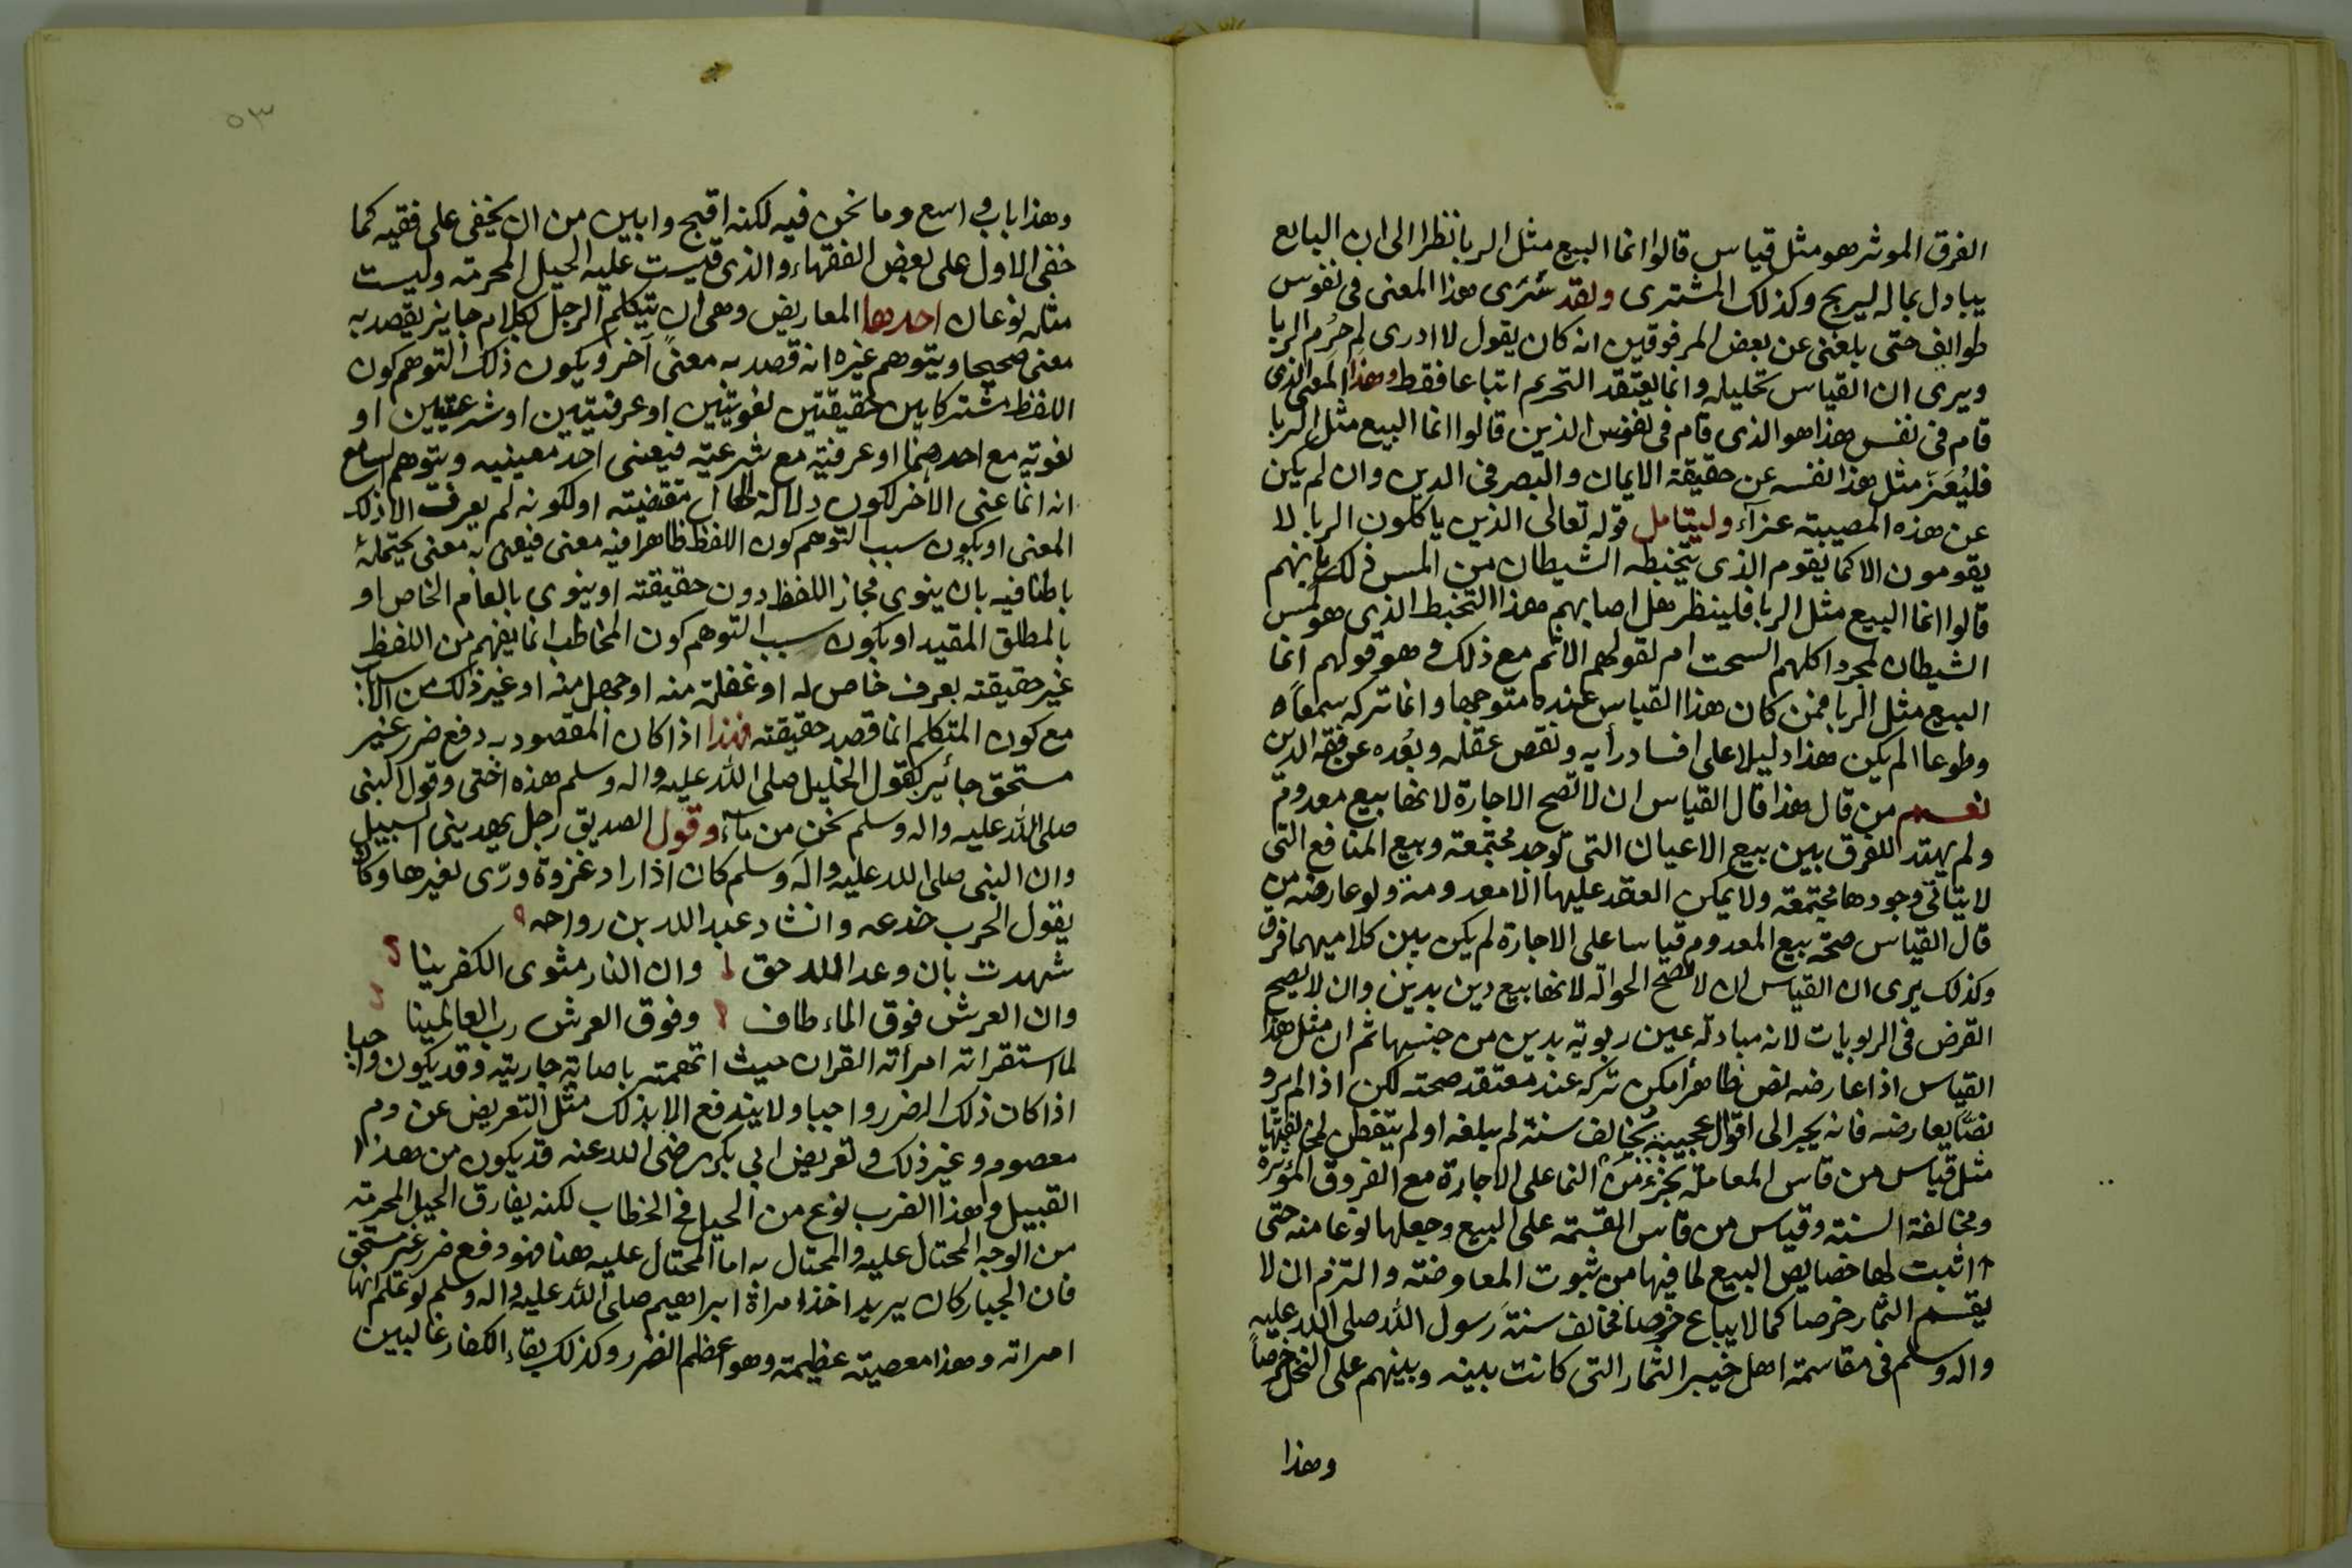 الفرق الموثر هو مثل قياس قالوا انما البيع مثل الربا نظرا الى ان البايع
يبادل بماله ليربح وكذلك المشترى ولقد سرى هذا المعنى فى نفوس
طوايف حتى بلغنى عن بعض المرفوقين انه كان يقول لا ادرى لم حُرم الربا
ويرى ان القياس تحليله وانما يعتقد التحريم اتباعا فقط وهذا المعنى الذى
قام فى نفس هذا هو الذى قام فى نفوس الذين قالوا انما البيع مثل الربا
فليُعَزّ مثل هذا نفسه عن حقيقة الايمان والبصر فى الدين وان لم يكن
عن هذه المصيبة عزآء وليتامل قوله تعالى الذين ياكلون الربا لا
يقومون الا كما يقوم الذى يتخبطه الشيطان من المس ذلك بانهم
قالوا انما البيع مثل الربا فلينظر هل اصابهم هذا التخبط الذى هو كمس
الشيطان لمجرد اكلهم السحت ام لقولهم الاثم مع ذلك وهو قولهم انما
البيع مثل الربا فمن كان هذا القياس عنده متوجها وانما تركه سمعا
وطوعا الم يكن هذا دليلا على افساد رأيه ونقص عقله وبُعده عن فقه الدين
نعم من قال هذا قال القياس ان لا تصح الاجارة لانها بيع معدوم
ولم يهتد للفرق بين بيع الاعيان التى توجد مجتمعة وبيع المنافع التى
لا يتاتى وجودها مجتمعة ولا يمكن العقد عليها الا معدومة ولو عارضه من
قال القياس صحة بيع المعدوم قياسا على الاجارة لم يكن بين كلاميهما فرق
وكذلك يرى ان القياس ان لا تصح الحوالة لانها بيع دين بدين وان لا يصح
القرض فى الربويات لانه مبادلة عين ربوية بدين من جنسها ثم ان مثل هذا
القياس اذا عارضه نص ظاهرا امكن تركه عند معتقد صحته لكن اذا لم يرو
نصًّا يعارضه فانه يجر الى اقوال عجيبة تخالف سنة لم يبلغه او لم يتفطن لمخالفتها
مثل قياس من قاس المعاملة بجزء من النما على الاجارة مع الفروق المؤثرة
ومخالفة السنة وقياس من قاس القسمة على البيع وجعلها نوعا منه حتى
اثبت لها خصايص البيع لما فيها من ثبوت المعاوضة والتزم ان لا
يقسم الثمار خرصا كما لا يباع خرصا فخالف سنة رسول الله صلى الله عليه
واله وسلم فى مقاسمة اهل خيبر الثمار التى كانت بينه وبينهم على النخل خرصاً
وهذا
٥٣
وهذا باب واسع وما نحن فيه لكنه اقبح وابين من ان يخفى على فقيه كما
خفى الاول على بعض الفقهاء والذى قيست عليه الحيل المحرمة وليست
مثله نوعان احدها المعاريض وهى ان يتكلم الرجل بكلام جايز يقصد به
معنى صحيحا ويتوهم غيره انه قصد به معنىً آخر ويكون ذلك التوهم كون
اللفظ مشتركا بين حقيقتين لغويتين او عرفيتين او شرعيتين او
لغوية مع احدهما او عرفية مع شرعية فيعنى احد معينيه ويتوهم السامع
انه انما عنى الاخر لكون دلالة الحال تقتضيته او لكونه لم يعرف الا ذلك
المعنى او يكون سبب التوهم كون اللفظ ظاهرا فيه معنى فيعنى به معنى يحتمله
باطنا فيه بان ينوى مجاز اللفظ دون حقيقته او ينوى بالعام الخاص او
بالمطلق المقيد او يكون سبب التوهم كون المخاطب انما يفهم من اللفظ
غير حقيقته بعرف خاص له او غفلة منه او جهل منه او غير ذلك من الاسباب
مع كون المتكلم انما قصد حقيقته فهذا اذا كان المقصود به دفع ضرر غير
مستحق جائز كقول الخليل صلى الله عليه واله وسلم هذه اختى وقول النبى
صلى الله عليه واله وسلم نحن من مآء وقول الصديق رجل يهدينى السبيل
وان النبى صلى الله عليه وآله وسلم كان اذا اراد غزوة ورّى لغيرها وكان
يقول الحرب خدعه وانشاد عبد الله بن رواحه
شهدت بان وعد الله حق وان النار مثوى الكفرينا
وان العرش فوق الماء طاف وفوق العرش رب العالمينا
لما استقراته امرأته القران حيث اتهمته باصابة جاريته وقد يكون واجبا
اذا كان ذلك الضرر واجبا ولا يندفع الا بذلك مثل التعريض عن دم
معصوم وغير ذلك وتعريض ابى بكر رضى الله عنه قد يكون من هذا
القبيل وهذا الضرب نوع من الحيل فى الخطاب لكنه يفارق الحيل المحرمة
من الوجه المحتال عليه والمحتال به اما المحتال عليه هنا فهو دفع ضرر غير مستحق
فان الجبار كان يريد اخذ امراة ابراهيم صلى الله عليه واله وسلم لو علم انها
امراته وهذا معصية عظيمة وهو اعظم الضرر وكذلك بقاء الكفار غالبين